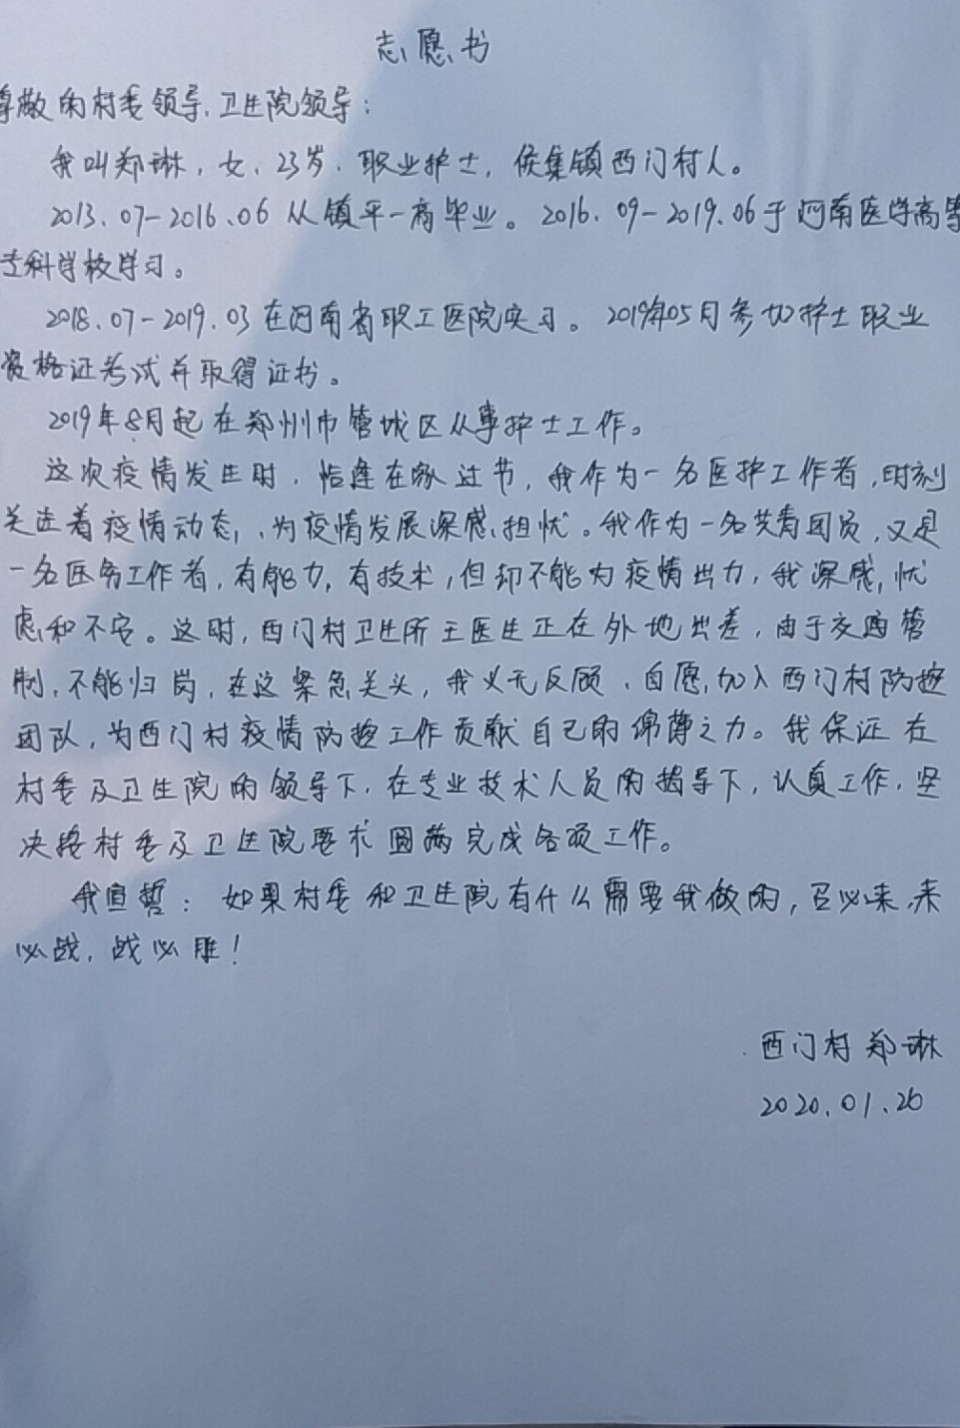 志愿书
尊敬的村委领导、卫生院领导：
我叫郑琳，女，23岁，职业护士，侯集镇西门村人。
2013.07-2016.06 从镇平一高毕业。2016.09-2019.06于河南医学高等
专科学校学习。
2018.07-2019.03在河南省职工医院实习。2019年05月参加护士职业
资格证考试并取得证书。
2019年8月起在郑州市管城区从事护士工作。
这次疫情发生时，恰逢在家过节，我作为一名医护工作者，时刻
关注着疫情动态，为疫情发展深感担忧。我作为一名共青团员，又是
一名医务工作者，有能力，有技术，但却不能为疫情出力，我深感忧
虑和不安。这时，西门村卫生所王医生正在外地出差，由于交通管
制，不能归岗，在这紧急关头，我义无反顾，自愿加入西门村防控
团队，为西门村疫情防控工作贡献自己的绵薄之力。我保证在
村委及卫生院的领导下，在专业技术人员的指导下，认真工作，坚
决按村委及卫生院要求圆满完成各项工作。
我宣誓：如果村委和卫生院有什么需要我做的，召必来，来
必战，战必胜！
西门村郑琳
2020.01.26